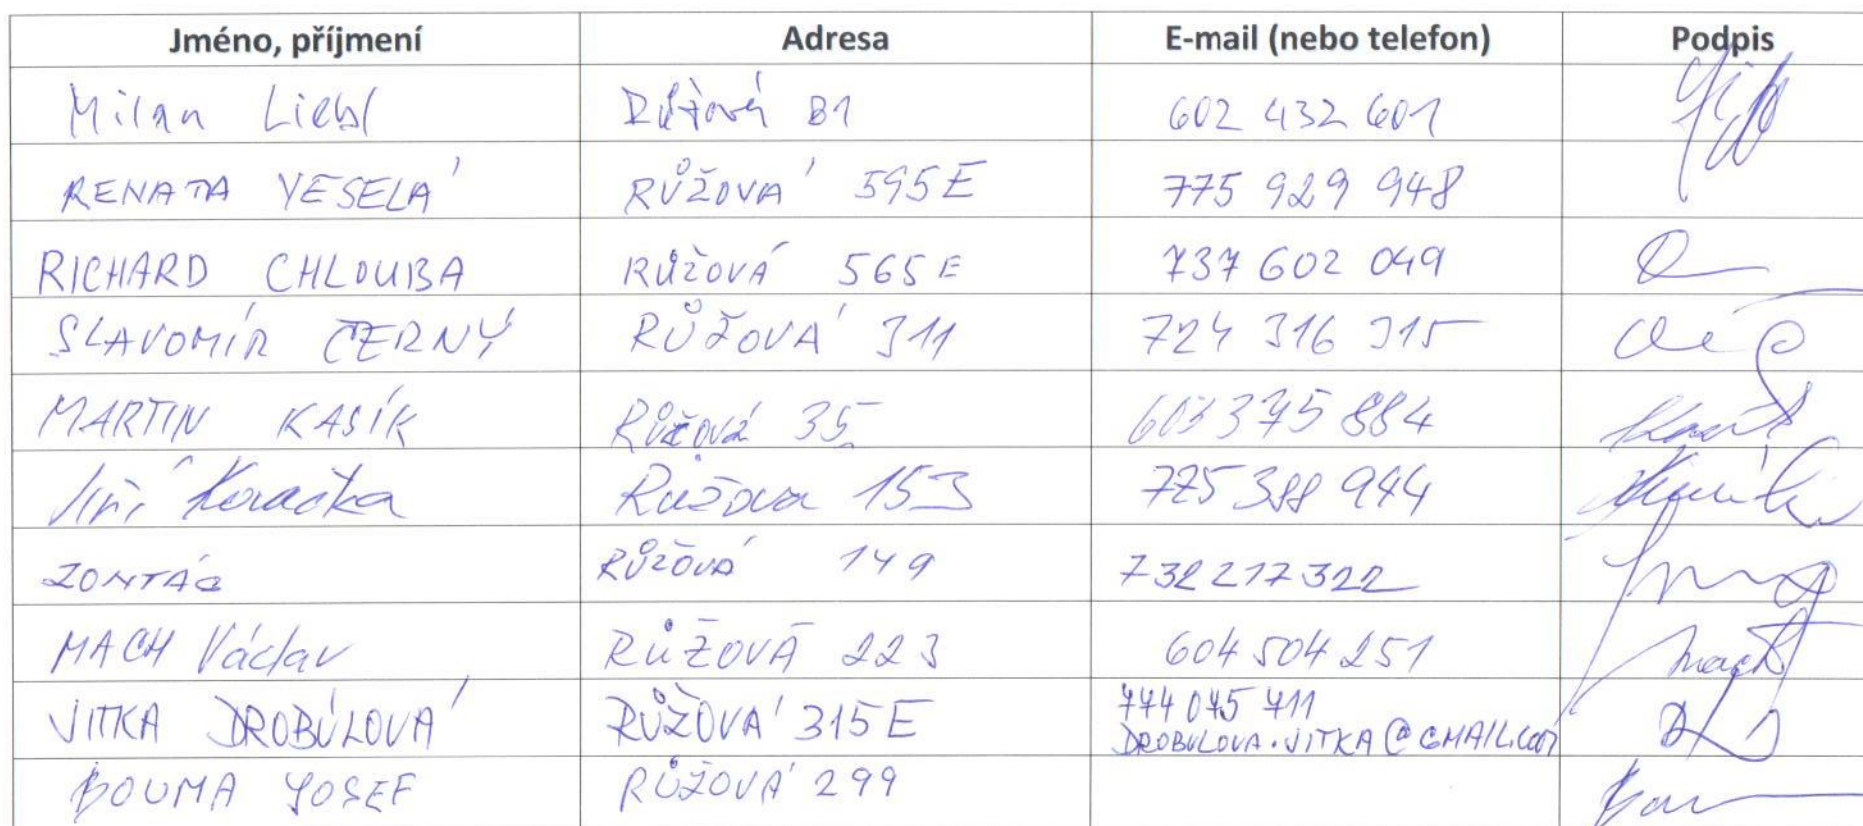 Jméno, příjmení Adresa E-mail (nebo telefon) Podpis
Milan Liebl Růžová 81 602 432 601
RENATA VESELÁ RŮŽOVÁ 595E 775 929 948
RICHARD CHLOUBA RŮŽOVÁ 565E 737 602 049
SLAVOMÍR ČERNÝ RŮŽOVÁ 311 724 316 315
MARTIN KASÍK Růžová 35 603 375 884
Jiří Růžová 153 775 388 944
RŮŽOVÁ 149 732 217 322
MACH Václav RŮŽOVÁ 223 604 504 251
JITKA DROBÚLOVÁ RŮŽOVÁ 315E 774 075 711
DROBULOVA.JITKA@GMAIL.COM
BOUMA JOSEF RŮŽOVÁ 299